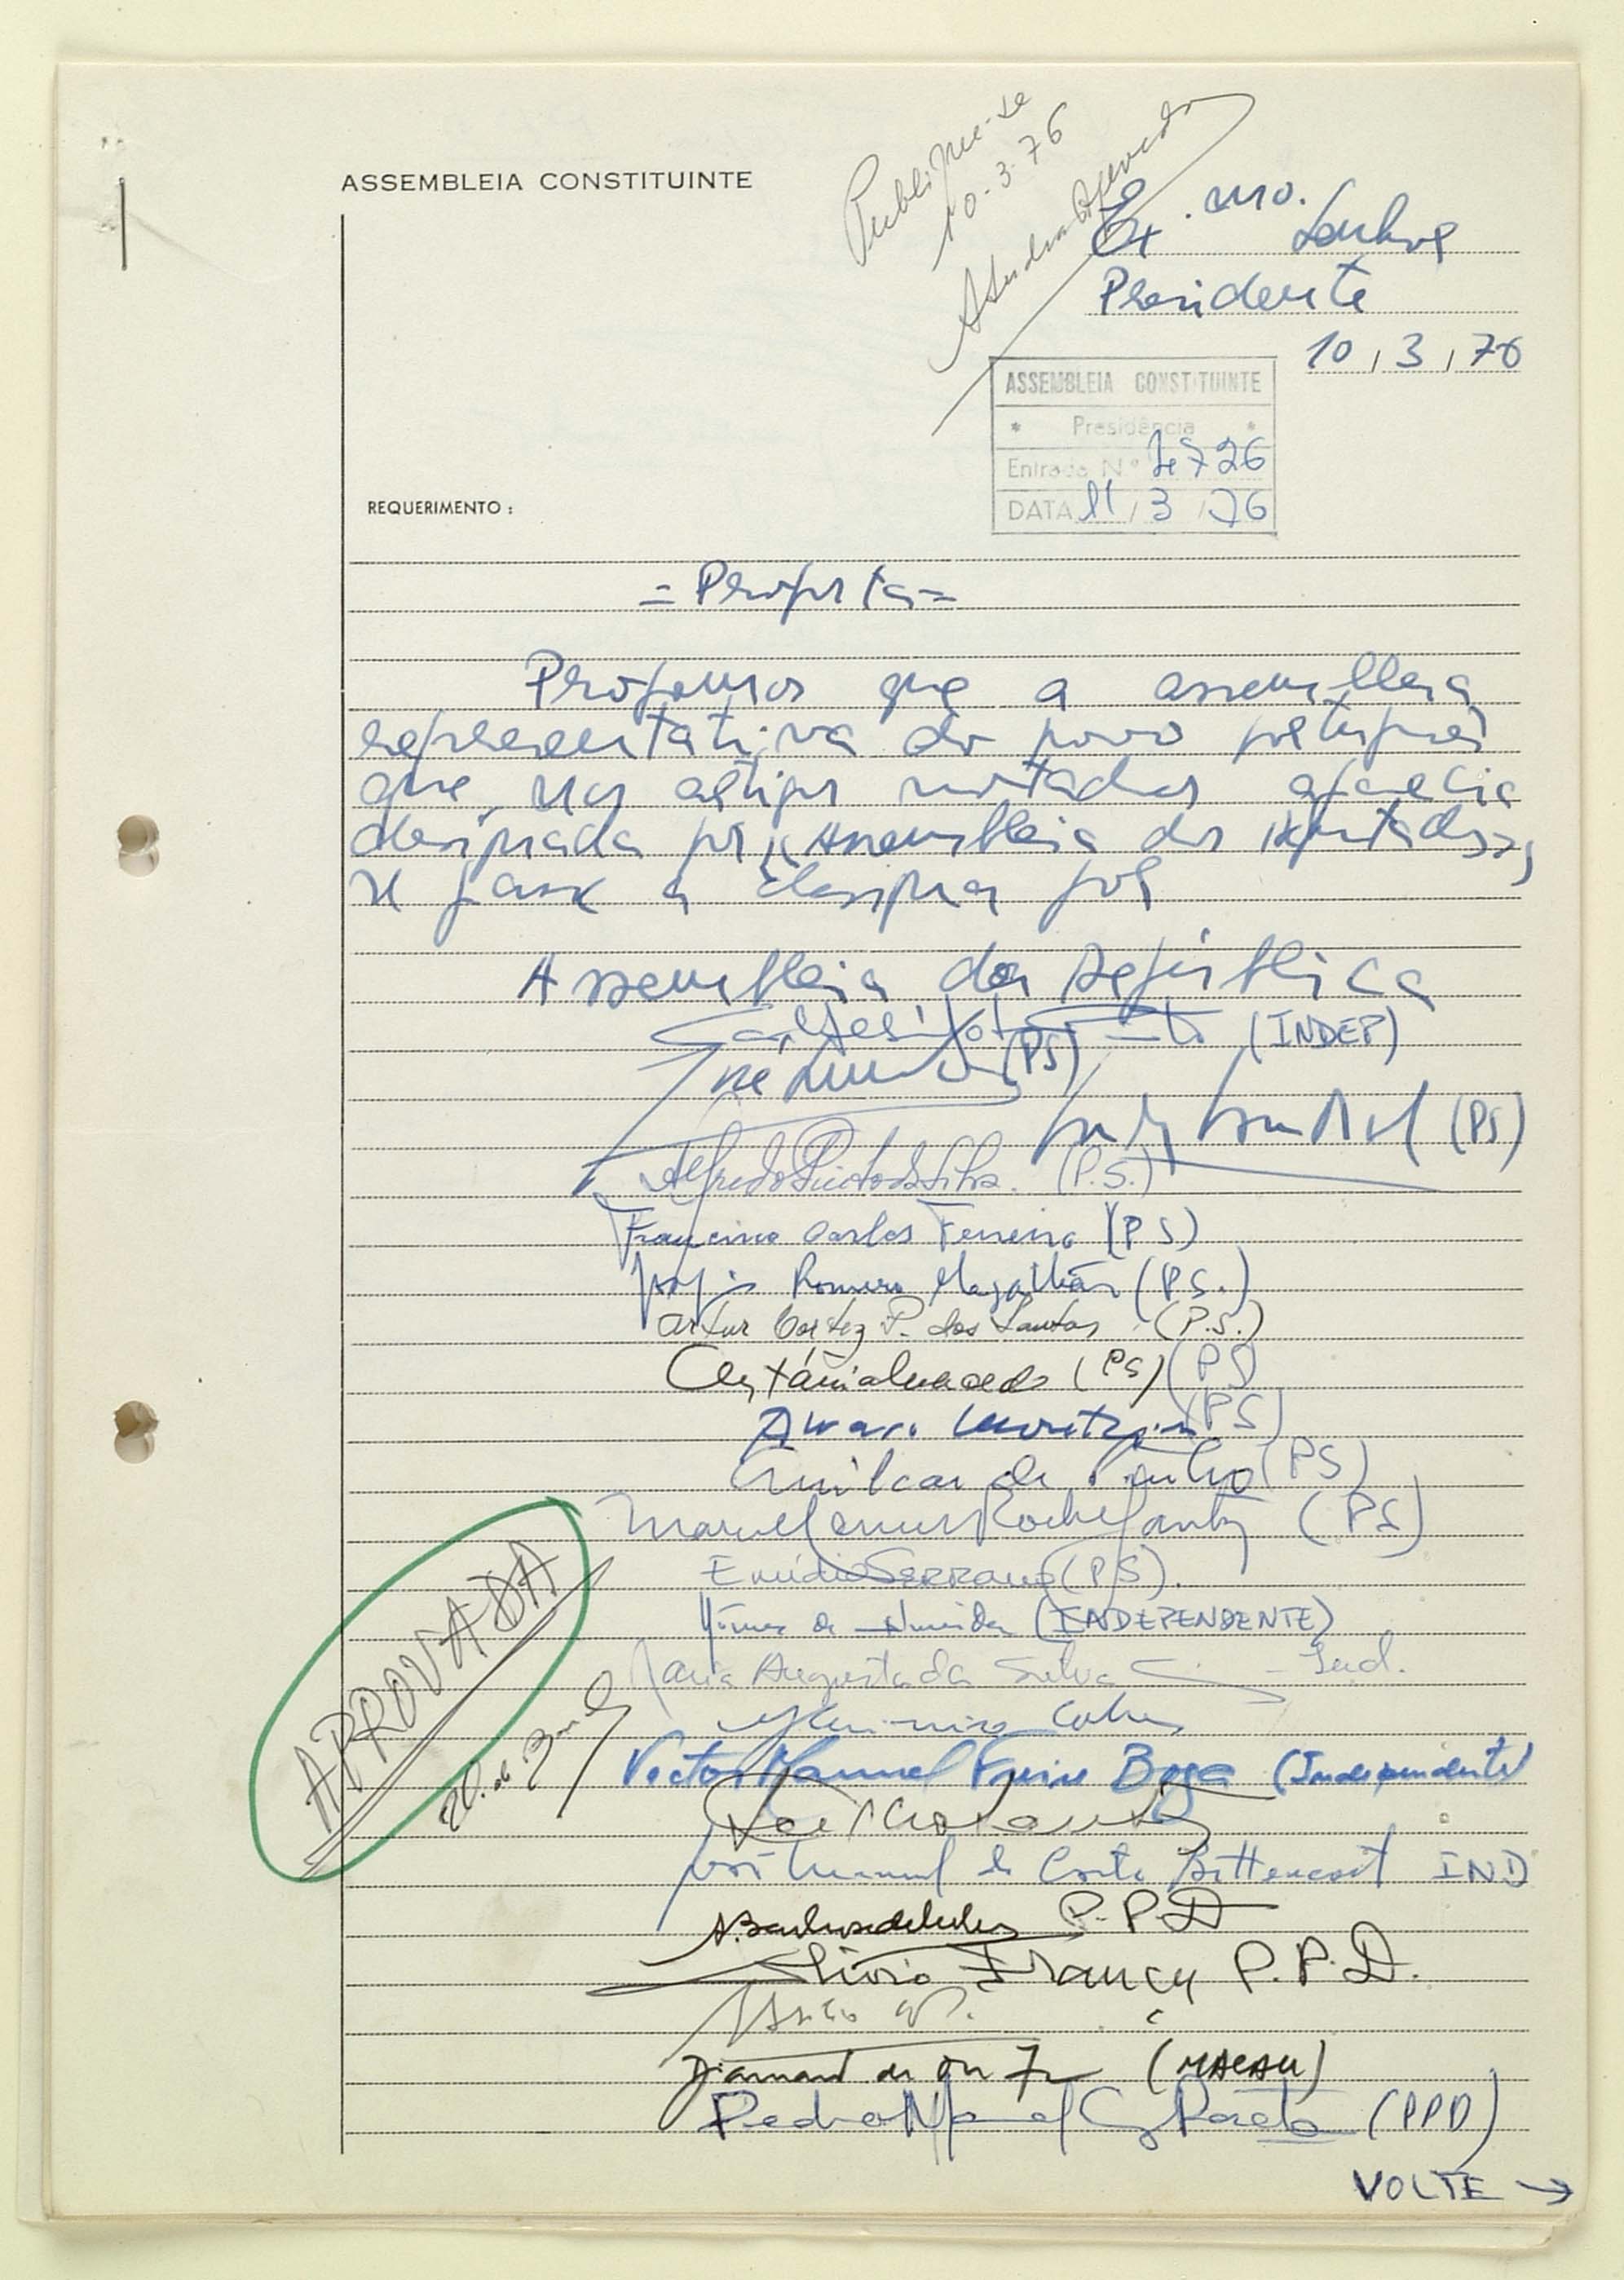 ASSEMBLEIA CONSTITUINTE
Publique-se
10-3-76
Ex.mo. Senhor
Presidente
10/3/76
ASSEMBLEIA CONSTITUINTE
* Presidência *
Entrada N.º 4726
DATA 11/3/76
REQUERIMENTO:
= Proposta =
Propomos que a assembleia
representativa do povo português
que, nos artigos votados aparecia
designada por «Assembleia dos Deputados»,
se passe a designar por
Assembleia da República
(INDEP)
José (PS)
(PS)
Alfredo Pinto da Silva. (P.S.)
Francisco Carlos Ferreira (PS)
Romero Magalhães (P.S.)
Artur Cortez P. dos Santos (P.S.)
(PS) (PS)
Alvaro Monteiro (PS)
Amilcar de Pinho (PS)
Manuel Rocha Santos (PS)
Emídio SERRANO (PS).
de Almeida (INDEPENDENTE)
APROVADA
Maria Augusta da Silva - Ind.
Victor Manuel Freire Boga (Independente)
José Manuel da Costa Bettencourt IND
P.P.D
Lívio França P.P.D.
Diamantino (MACAU)
Pedro Manuel Cruz Roseta (PPD)
VOLTE →